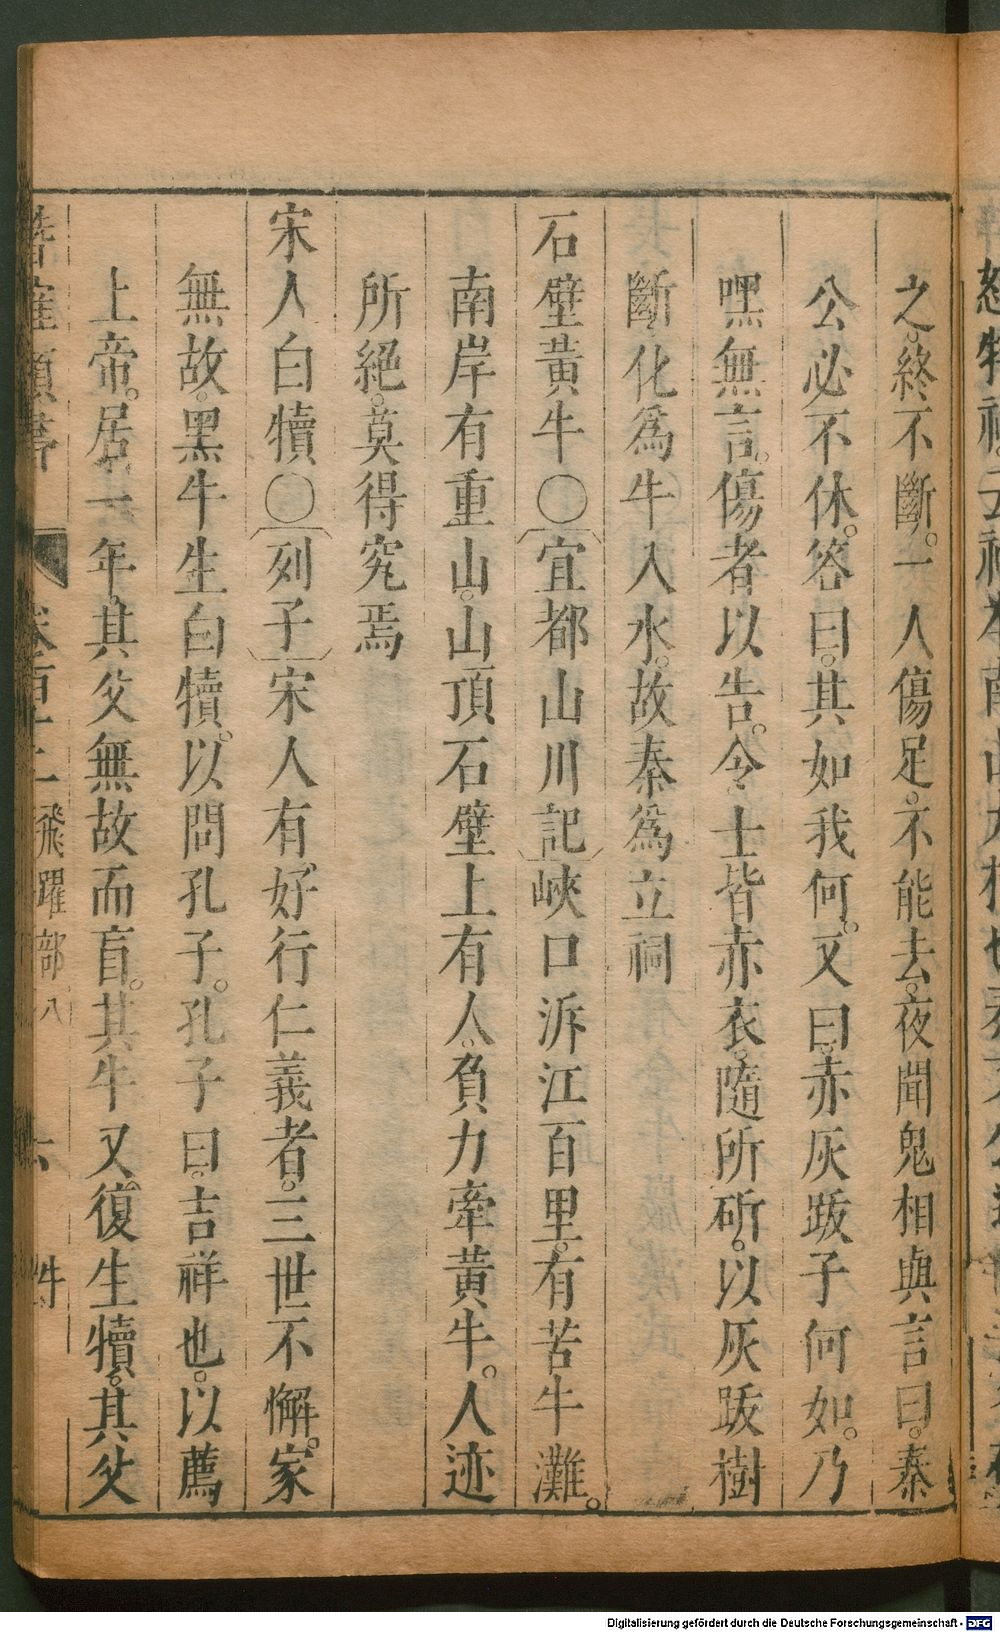 之。終不斷。一人傷足。不能去。夜聞鬼相與言曰。秦
公必不休。答曰。其如我何。又曰。赤灰跋子何如。乃
嘿無言。傷者以告。令士皆赤衣。隨所斫。以灰跋樹
斷。化爲牛入水。故秦爲立祠
石壁黃牛〇宜都山川記峽口泝江百里。有苦牛灘。
南岸有重山。山頂石壁上有人。負力牽黃牛。人迹
所絕。莫得究焉
宋人白犢〇列子宋人有好行仁義者。三世不懈。家
無故。黑牛生白犢。以問孔子。孔子曰。吉祥也。以薦
上帝。居一年。其父無故而盲。其牛又復生犢。其父
飛躍部八
Digitalisierung gefördert durch die Deutsche Forschungsgemeinschaft - DFG